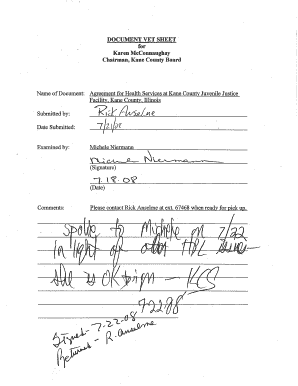 DOCUMENT VET SHEET
for
Karen McConnaughay
Chairman, Kane County Board
Name of Document: Agreement for Health Services at Kane County Juvenile Justice
Facility, Kane County, Illinois
Submitted by: Rick Anselme
Date Submitted: 7/21/08
Examined by: Michele Niermann
Michele Niermann
(Signature)
7.18.08
(Date)
Comments: Please contact Rick Anselme at ext. 67468 when ready for pick up.
Spoke to Michele on 7/22
In light of other issues-
she is OK to sign - KCS
7-22-08
Signed - 7-22-08
Returned - R. Anselme